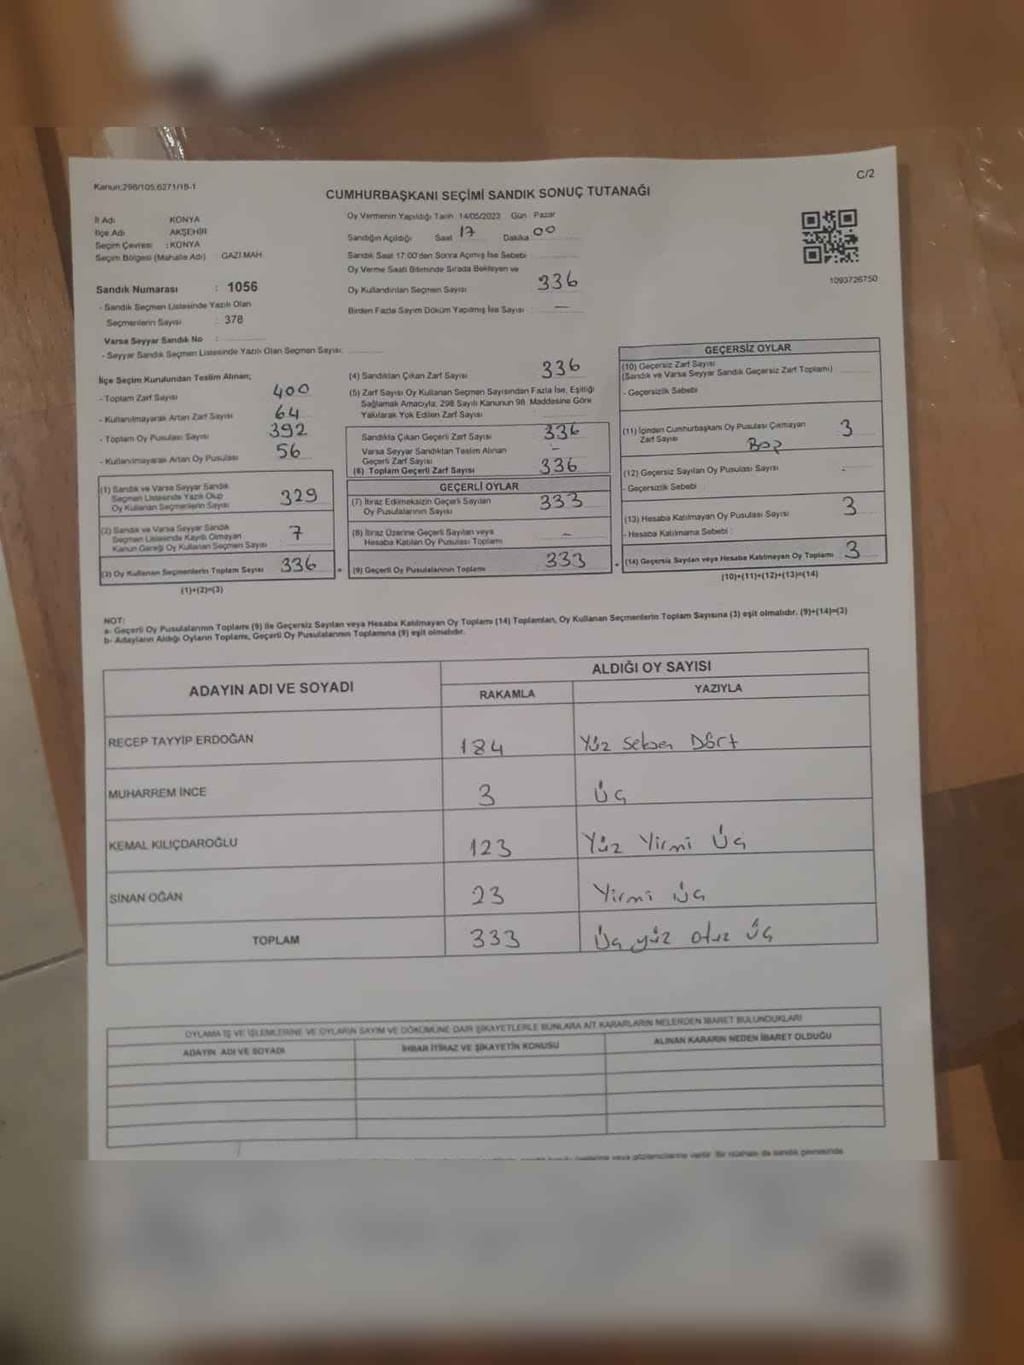 Kanun:298/105,6271/18-1
C/2
CUMHURBAŞKANI SEÇİMİ SANDIK SONUÇ TUTANAĞI
İl Adı KONYA
İlçe Adı AKŞEHİR
Seçim Çevresi : KONYA
Seçim Bölgesi (Mahalle Adı) GAZİ MAH.
Sandık Numarası : 1056
- Sandık Seçmen Listesinde Yazılı Olan
Seçmenlerin Sayısı : 378
Varsa Seyyar Sandık No :
- Seyyar Sandık Seçmen Listesinde Yazılı Olan Seçmen Sayısı:
Oy Vermenin Yapıldığı Tarih 14/05/2023 Gün Pazar
Sandığın Açıldığı Saat 17 Dakika 00
Sandık Saat 17:00'den Sonra Açılmış İse Sebebi
Oy Verme Saati Bitiminde Sırada Bekleyen ve
Oy Kullandırılan Seçmen Sayısı 336
Birden Fazla Sayım Döküm Yapılmış İse Sayısı : —
1093726750
İlçe Seçim Kurulundan Teslim Alınan;
- Toplam Zarf Sayısı 400
- Kullanılmayarak Artan Zarf Sayısı 64
- Toplam Oy Pusulası Sayısı 392
- Kullanılmayarak Artan Oy Pusulası 56
(1) Sandık ve Varsa Seyyar Sandık
Seçmen Listesinde Yazılı Olup
Oy Kullanan Seçmenlerin Sayısı 329
(2) Sandık ve Varsa Seyyar Sandık
Seçmen Listesinde Kayıtlı Olmayan
Kanun Gereği Oy Kullanan Seçmen Sayısı 7
(3) Oy Kullanan Seçmenlerin Toplam Sayısı 336
(1)+(2)=(3)
(4) Sandıktan Çıkan Zarf Sayısı 336
(5) Zarf Sayısı Oy Kullanan Seçmen Sayısından Fazla İse, Eşitliği
Sağlamak Amacıyla, 298 Sayılı Kanunun 98. Maddesine Göre
Yakılarak Yok Edilen Zarf Sayısı
Sandıkta Çıkan Geçerli Zarf Sayısı 336
Varsa Seyyar Sandıktan Teslim Alınan
Geçerli Zarf Sayısı —
(6) Toplam Geçerli Zarf Sayısı 336
GEÇERLİ OYLAR
(7) İtiraz Edilmeksizin Geçerli Sayılan
Oy Pusulalarının Sayısı 333
(8) İtiraz Üzerine Geçerli Sayılan veya
Hesaba Katılan Oy Pusulası Toplamı —
(9) Geçerli Oy Pusulalarının Toplamı 333
GEÇERSİZ OYLAR
(10) Geçersiz Zarf Sayısı
(Sandık ve Varsa Seyyar Sandık Geçersiz Zarf Toplamı)
- Geçersizlik Sebebi
(11) İçinden Cumhurbaşkanı Oy Pusulası Çıkmayan
Zarf Sayısı Boş 3
(12) Geçersiz Sayılan Oy Pusulası Sayısı -
- Geçersizlik Sebebi
(13) Hesaba Katılmayan Oy Pusulası Sayısı 3
- Hesaba Katılmama Sebebi :
(14) Geçersiz Sayılan veya Hesaba Katılmayan Oy Toplamı 3
(10)+(11)+(12)+(13)=(14)
NOT:
a- Geçerli Oy Pusulalarının Toplamı (9) ile Geçersiz Sayılan veya Hesaba Katılmayan Oy Toplamı (14) Toplamları, Oy Kullanan Seçmenlerin Toplam Sayısına (3) eşit olmalıdır. (9)+(14)=(3)
b- Adayların Aldığı Oyların Toplamı, Geçerli Oy Pusulalarının Toplamına (9) eşit olmalıdır.
ADAYIN ADI VE SOYADI
ALDIĞI OY SAYISI
RAKAMLA YAZIYLA
RECEP TAYYİP ERDOĞAN 184 Yüz Seksen Dört
MUHARREM İNCE 3 Üç
KEMAL KILIÇDAROĞLU 123 Yüz Yirmi Üç
SİNAN OĞAN 23 Yirmi Üç
TOPLAM 333 Üç yüz otuz üç
OYLAMA İŞ VE İŞLEMLERİNE VE OYLARIN SAYIM VE DÖKÜMÜNE DAİR ŞİKAYETLERLE BUNLARA AİT KARARLARIN NELERDEN İBARET BULUNDUKLARI
ADAYIN ADI VE SOYADI İHBAR İTİRAZ VE ŞİKAYETİN KONUSU ALINAN KARARIN NEDEN İBARET OLDUĞU